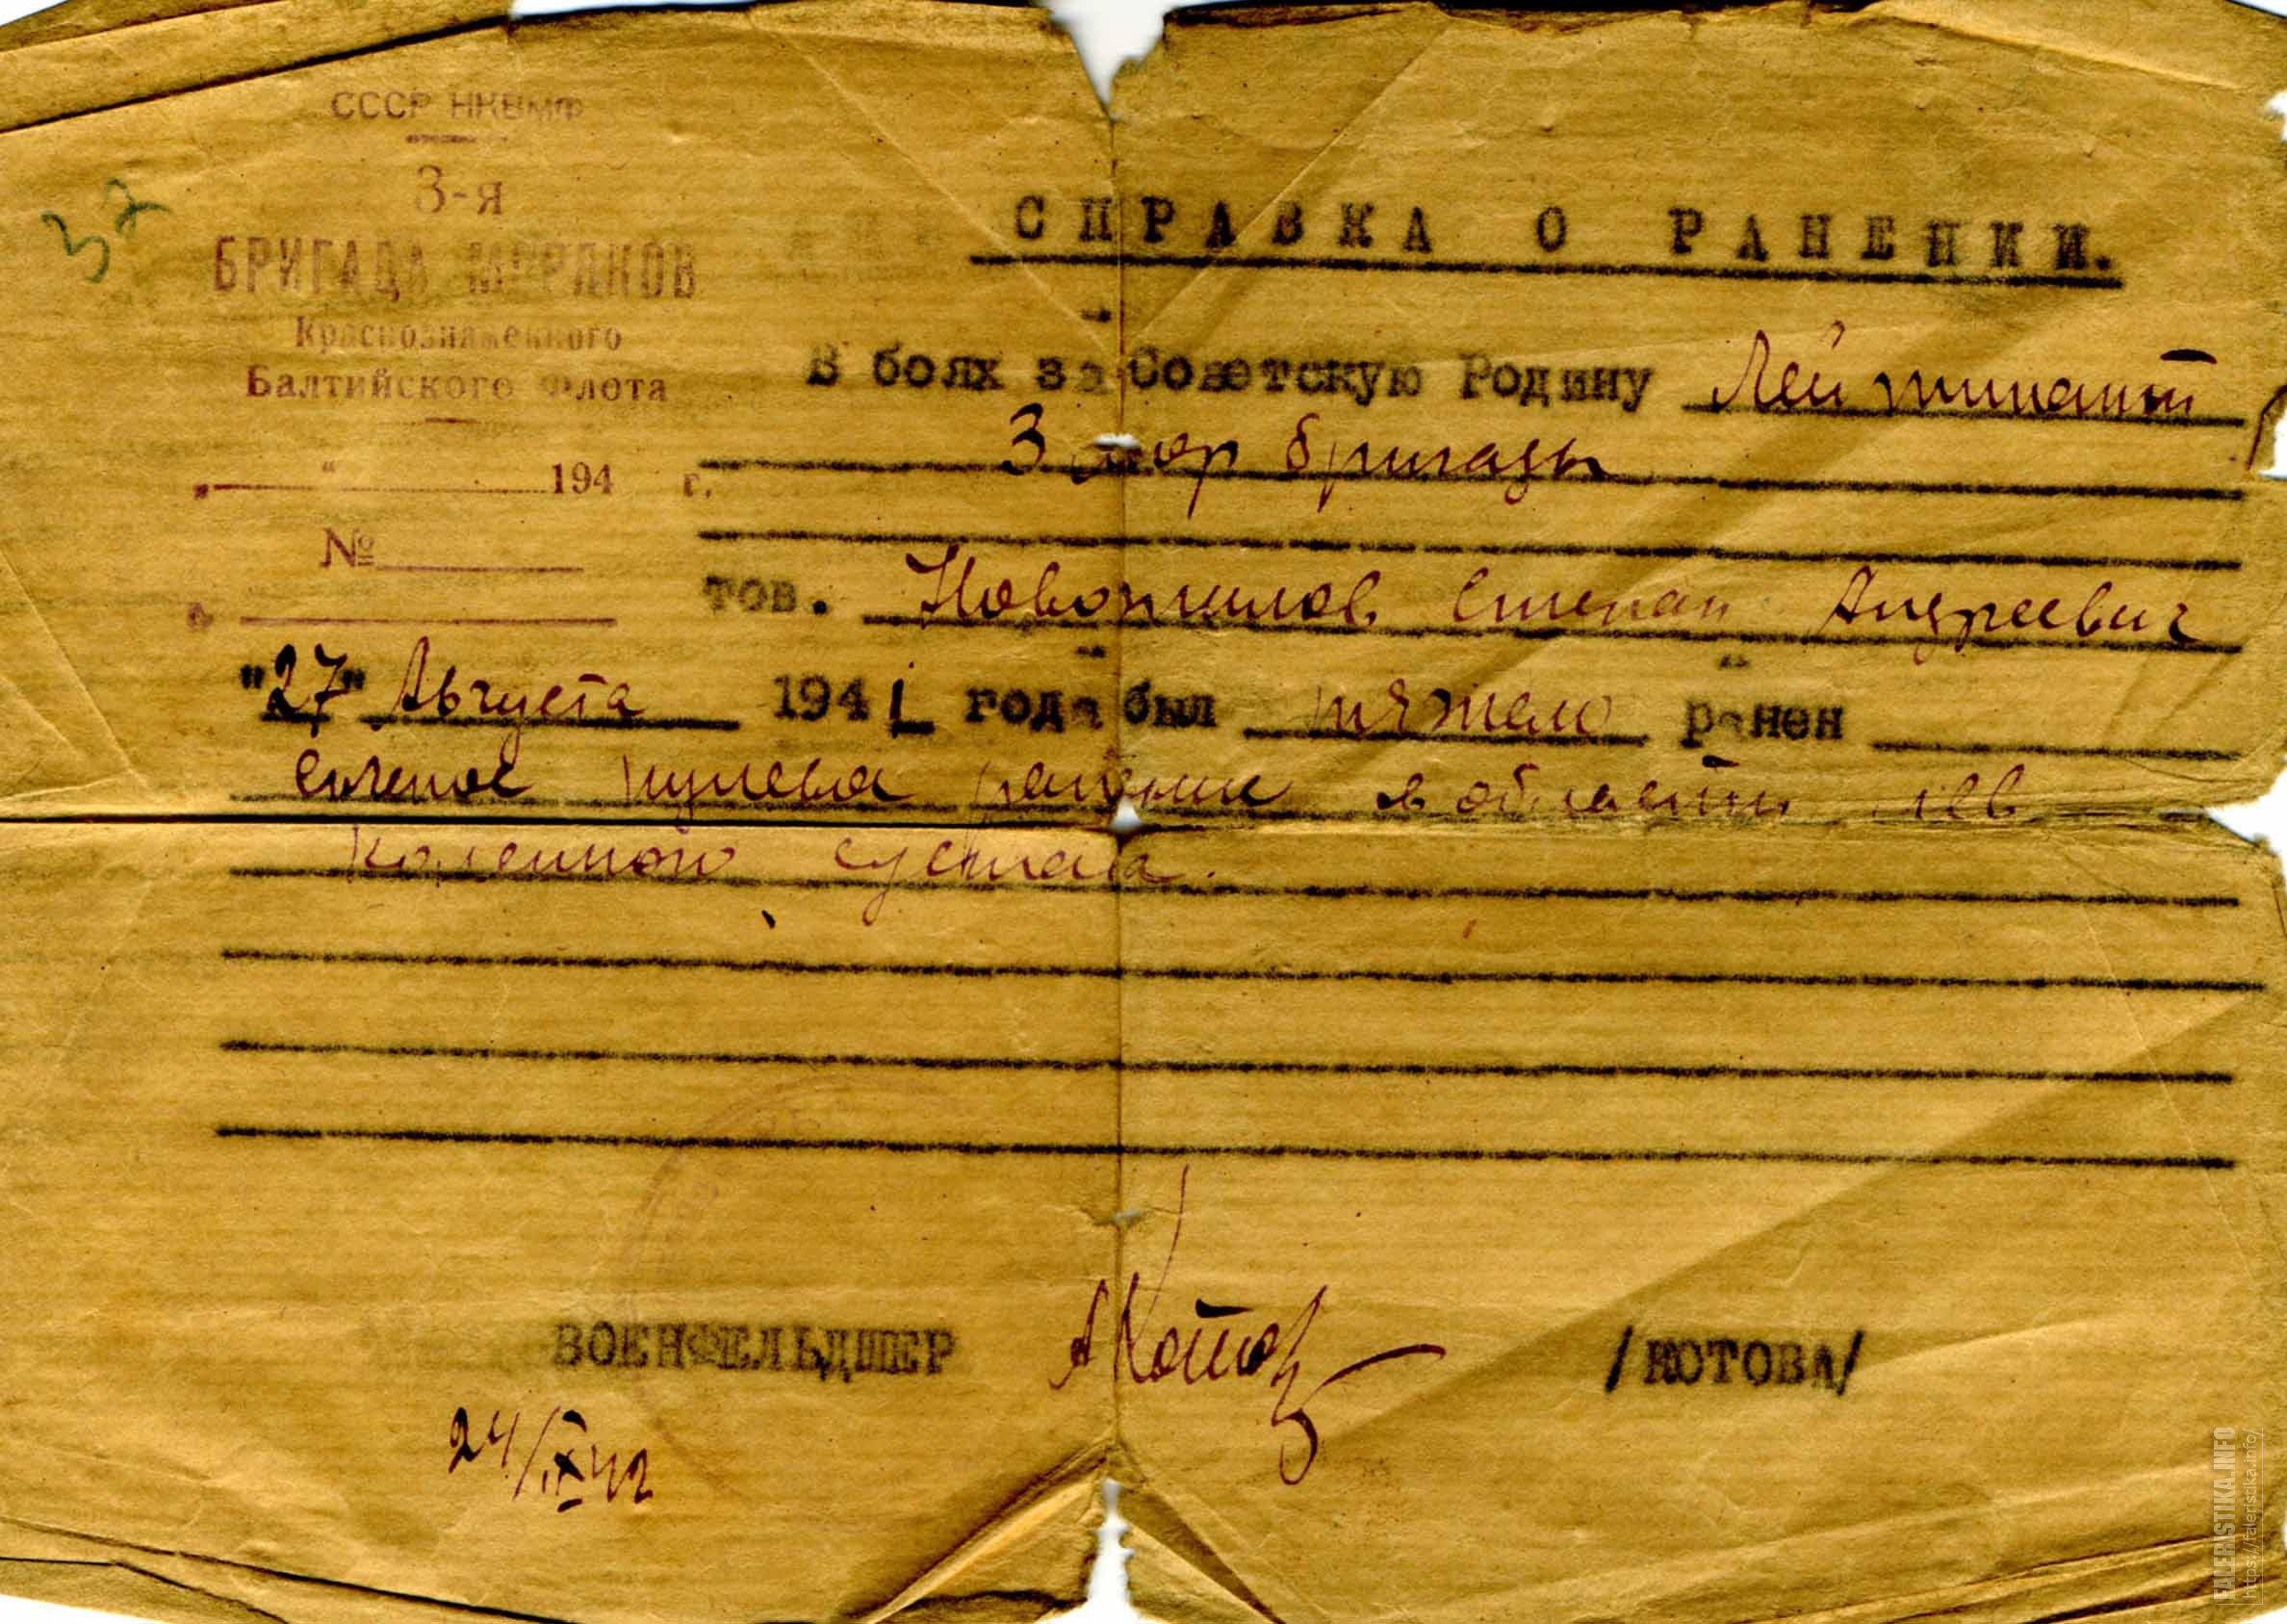 СССР НКВМФ
3-я
БРИГАДА МОРЯКОВ
Краснознаменного
Балтийского Флота
„ “ 194 г.
№
32
СПРАВКА О РАНЕНИИ.
В боях за Советскую Родину Лейтинант
3 мор бригады
тов. Новожилов Степан Андреевич
"27" Августа 1941 года был тяжело ранен
слепое пулевое ранение в области лев
коленного сустава.
ВОЕНФЕЛЬДШЕР АКотов /КОТОВА/
24/IX 42
FALERISTIKA.INFO
https://faleristika.info/